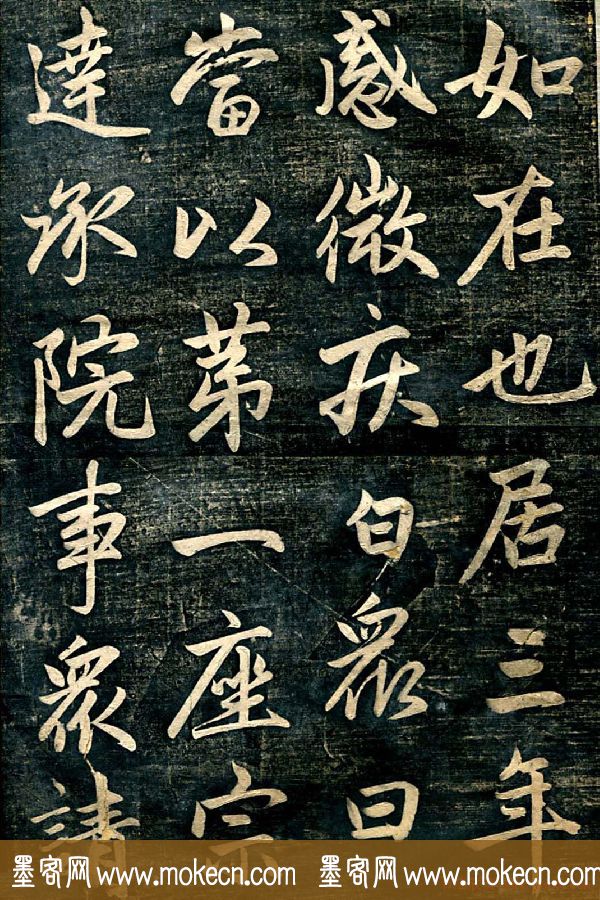 如在也居三年
感微疾白眾曰
當以苐一座宗
達承院事眾請
墨客网 www.mokecn.com 墨客网 www.mokecn.com